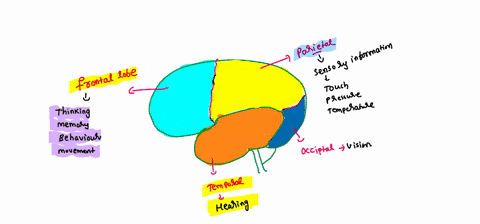 Frontal lobe
Thinking
memory
Behaviour
movement
Parietal
Sensory information
Touch
Pressure
Temperature
Occiptal → Vision
Temporal
Hearing